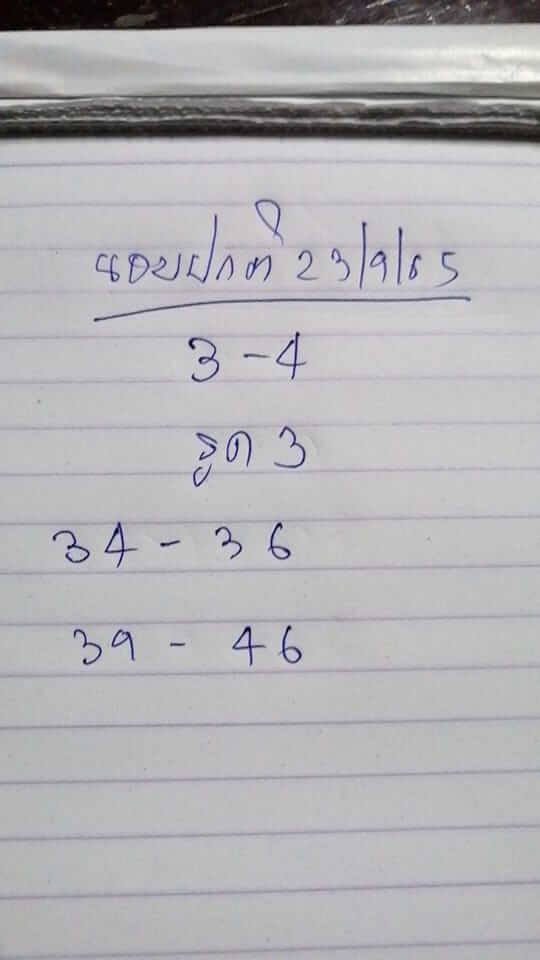 ฮอยปกติ 23/9/65
3-4
รูด 3
34 - 36
39 - 46